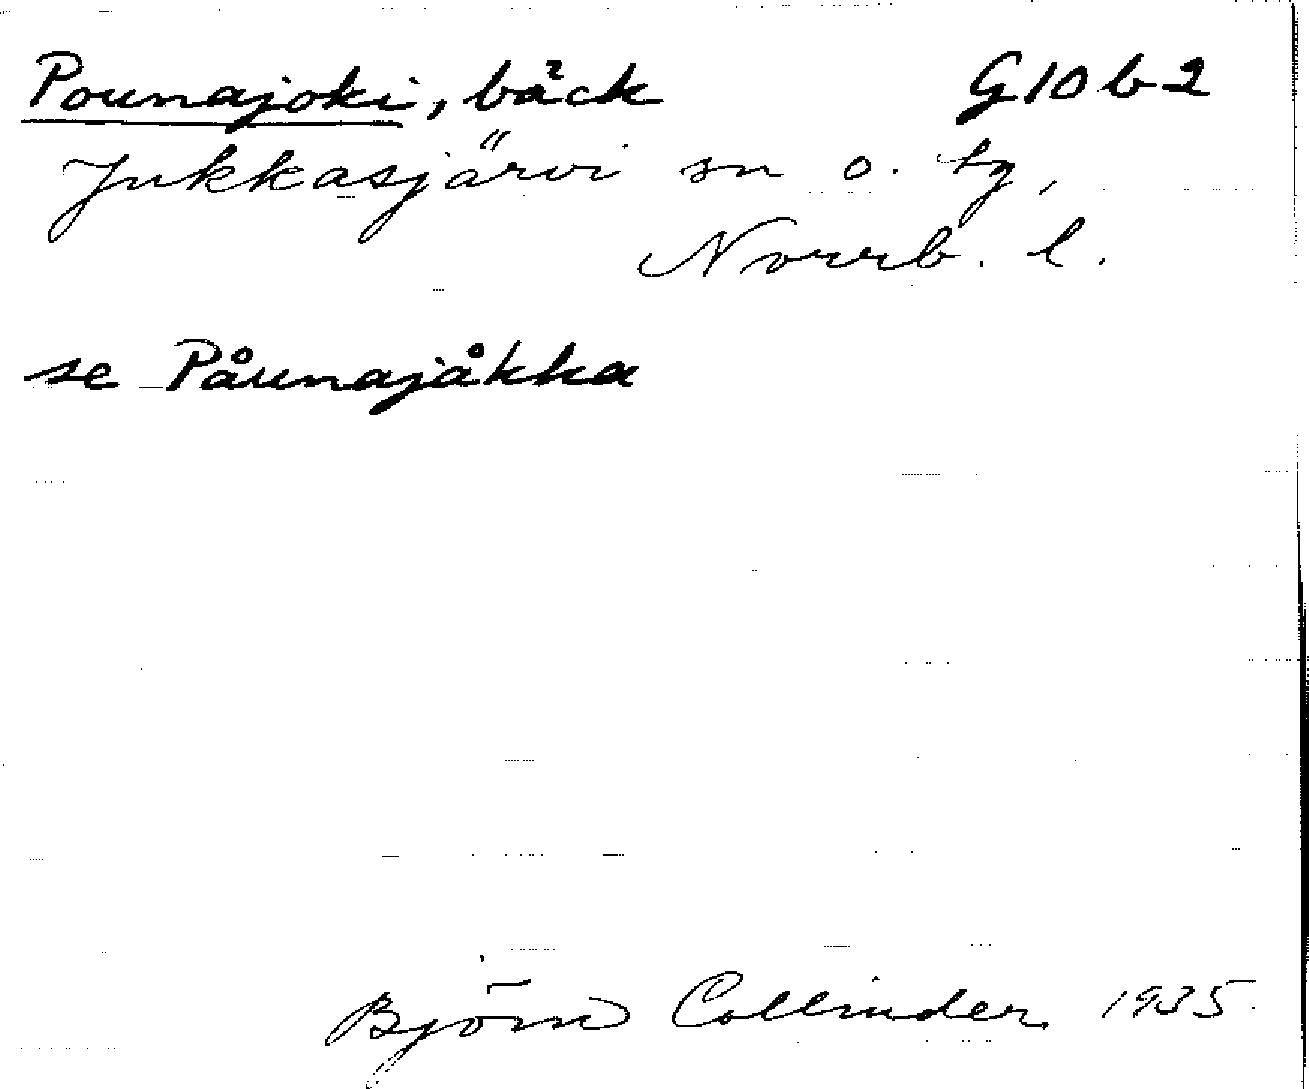 Pounajoki, bäck G10b2
Jukkasjärvi sn o. tg,
Norrb. l.
se Påunajåkka
Björn Collinder 1935.